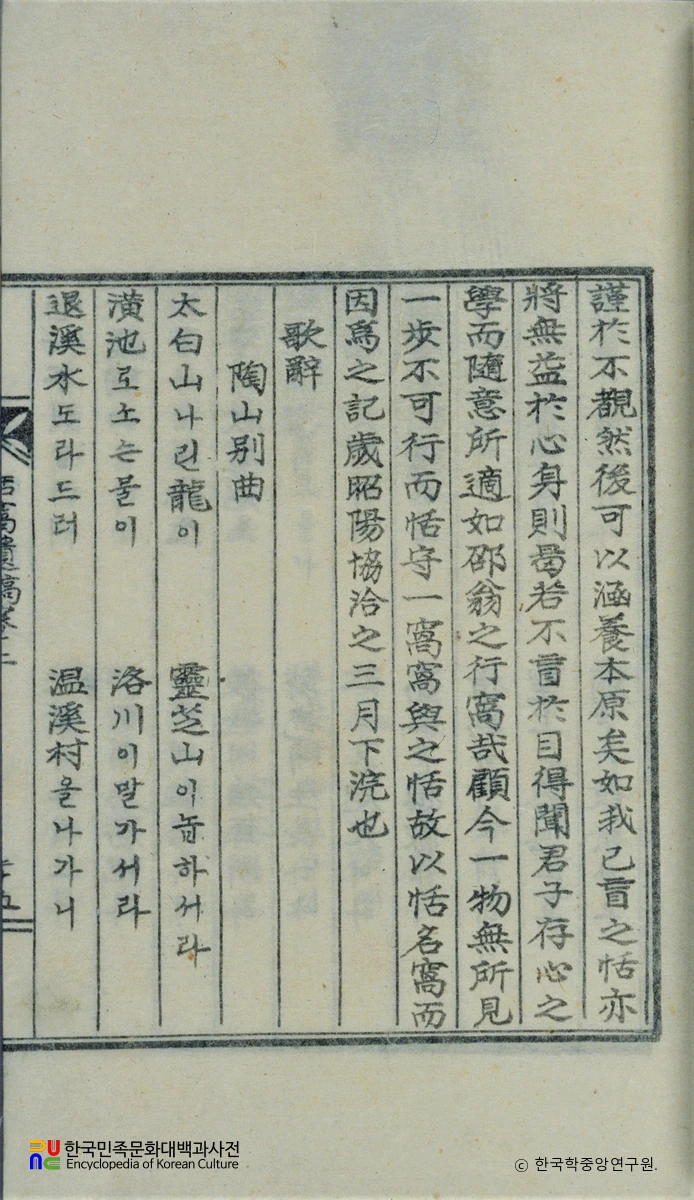 謹於不覩然後可以涵養本原矣如我已盲之恬亦
將無益於心身則曷若不盲於目得聞君子存心之
學而隨意所適如邵翁之行窩哉顧今一物無所見
一步不可行而恬守一窩窩與之恬故以恬名窩而
因爲之記歲昭陽協洽之三月下浣也
歌辭
陶山别曲
太白山나린龍이 靈芝山이놉하서라
潢池로소는물이 洛川이말가서라
退溪水도라드러 温溪村올나가니
恬窩遺稿卷之二
한국민족문화대백과사전
Encyclopedia of Korean Culture
ⓒ 한국학중앙연구원.